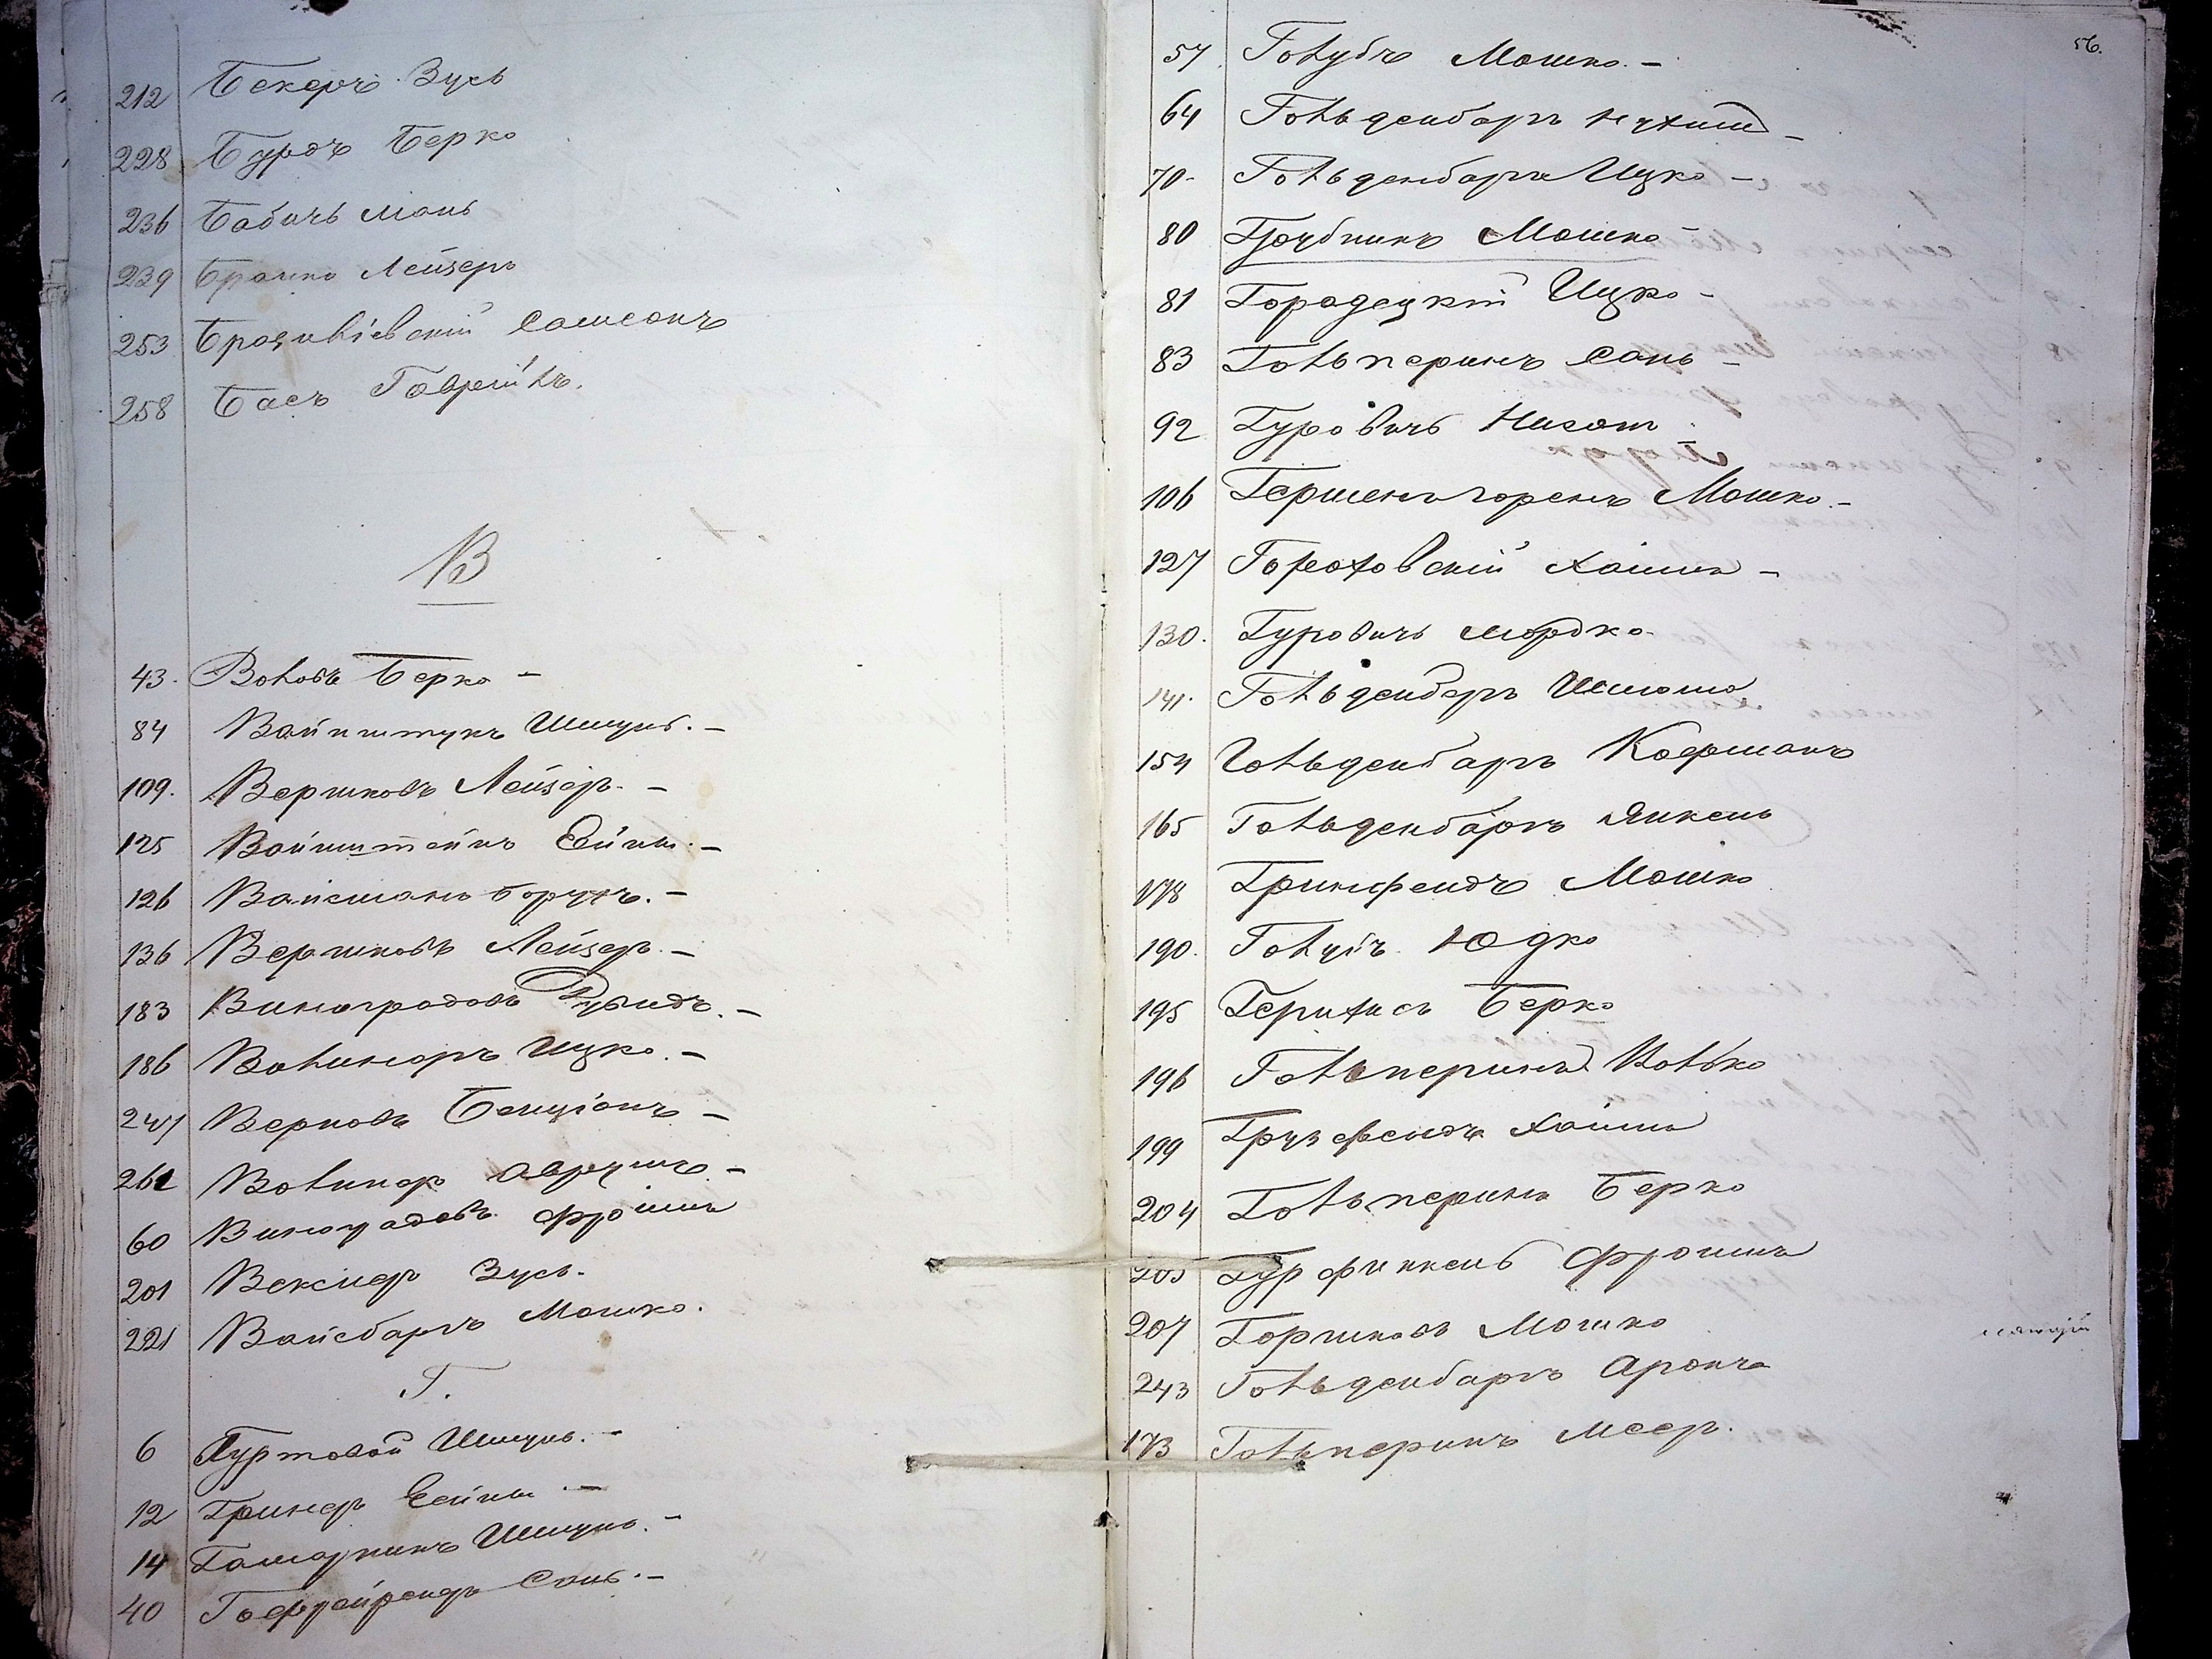 212 Бекеръ Зусь
228 Бурдъ Берко
236 Бабичъ
239 Лейзеръ
253 Самсонъ
258 Басъ Гаврiилъ.
В
43. Воловъ Берко –
84 Вайнштукъ Шмуль. –
109. Вершковъ Лейзеръ. –
125 Вайнштейнъ –
126 Вайсманъ Борухъ. –
136 Вершковъ Лейзеръ. –
183 Виноградовъ Рувидъ. –
186 Волинеръ Ицко. –
247 Верновъ Бенцiонъ –
261 Волинеръ Аврумъ –
60 Виноградовъ Фроимъ
201 Векслеръ Зусь.
221 Вайсбаргъ Мошко.
Г.
6 Гуртовой Шмуль. –
12 Гринеръ –
14 Гамарникъ Шмуль. –
40 –
56.
57. Голубъ Мошко. –
64 Гольденбаргъ Нухимъ –
70. Гольденбаргъ Ицко –
80 Грубникъ Мошко –
81 Городецкiй Ицко –
83 Гольперинъ Сань –
92 Гуровичъ
106 Гершенгоренъ Мошко. –
127 Гороховскiй Хаимъ –
130. Гуровичъ Мордко.
141. Гольденберъ Шлиома
154 Гольденбаргъ Кофманъ
165 Гольденбаргъ Янкель
178 Гринфельдъ Мошко
190. Голубъ Юдко
195 Берко
196 Гольперинъ Волько
199 Грузфельдъ Хаимъ
204 Гольперинъ Берко
205 Гурфинкель Фроимъ
207 Горшковъ Мошко
243 Гольденбаргъ Аронъ
173 Гольперинъ Меер.